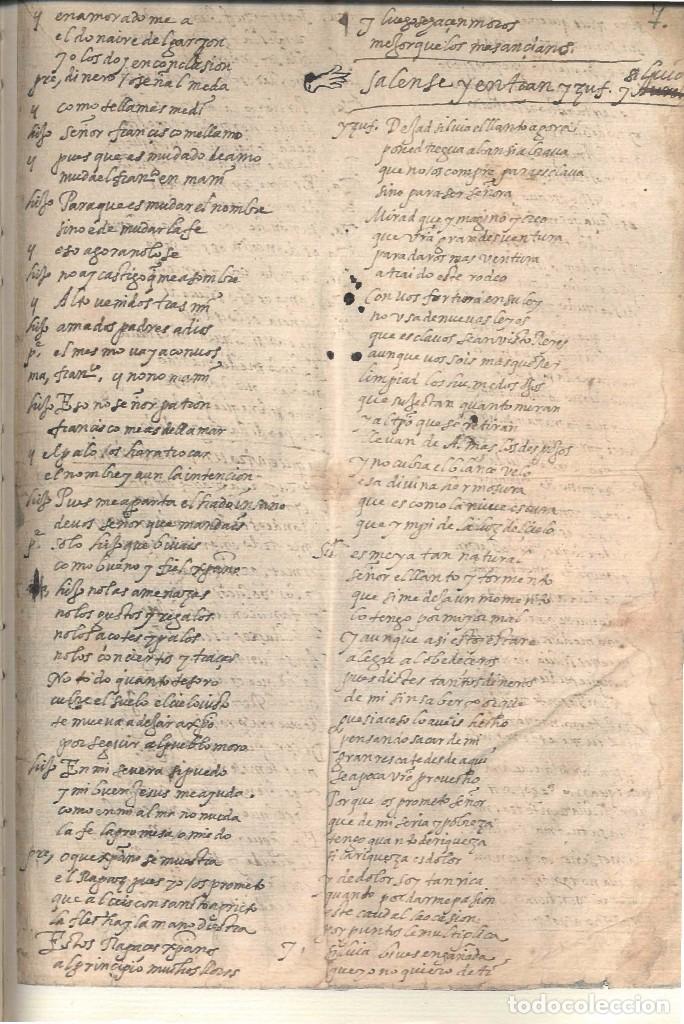 7.
y enamorado me a
el donaire del garzon
yo los doy en conclusion
pre, dinero / señal me da
y como te llamas me di
hijo Señor francisco me llamo
y pues que as mudado de amo
muda el franco en mami
hijo Para que es mudar el nombre
sino e de mudar la fe
y eso agora no lo se
hijo no ay castigo q me asombre
y Alto venidos tras mi
hijo amados padres adios
pe. el mesmo vaya con vos
ma, franco. y no no mami
hijo Eso no señor patron
francisco me as de llamar
y el palo los hara trocar
el nombre y aun la intencion
hijo Pues me aparta el hado insano
de vos señor que mandais
pe. solo hijo que bivais
como bueno y fiel xpiano
hijo no las amenazas
no los gustos y regalos
no los açotes y palos
no los conciertos y traças
No todo quanto tesoro
cubre el suelo el cielo
te mueva a dejar a xpo
por seguir al pueblo moro
hijo En mi se vera si puedo
y mi buen Jesus me ayuda
como en mi alma no muda
la fe la promesa o miedo
pre, o que xpiano se muestra
el Rapaz pues yo os prometo
que alceis con santo aprieto
la flecha y la mano diestra
Estos Rapaces xpianos
al principio muchos lloros
y luego se açen moros
mejor que los mas ancianos.
Salense y entran yzuf. y silvia
yzuf. Dejad silvia el llanto agora
poned tregua al ansia brava
que no os compre para esclava
sino para ser señora
Mirad que ymagino y creo
que vra gran desventura
para daros mas ventura
a traido este rodeo
Con vos fortuna en su ley
no usa de nuevas leyes
que esclavos se an visto Reyes
aunque vos sois mas que Rey
limpiad los humedos ojos
que sujetan quanto miran
y al tpo que se retiran
llevan de Almas los despojos
y no cubra el blanco velo
esa divina hermosura
que es como la nuve escura
que ympide la luz del cielo
Sil. es me ya tan natural
señor el llanto y tormento
que si me deja un momento
lo tengo por mayor mal
y aunque asi estare
alegre al obedeceros
pues distes tantos dineros
de mi sin saber
pues si aceso lo aveis hecho
pensando sacar de mi
gran rescate des de aqui
se apoca vro provecho
Porque os prometo señor
que de miseria y pobreza
tengo quanto de riqueza
si ay riqueza es dolor
y de dolor soy tan rica
quanto por darme pasion
este caudal la ocasion
por puntos le multiplica
Y. Silvia bives engañada
que yo no quiero de ti
todocoleccion